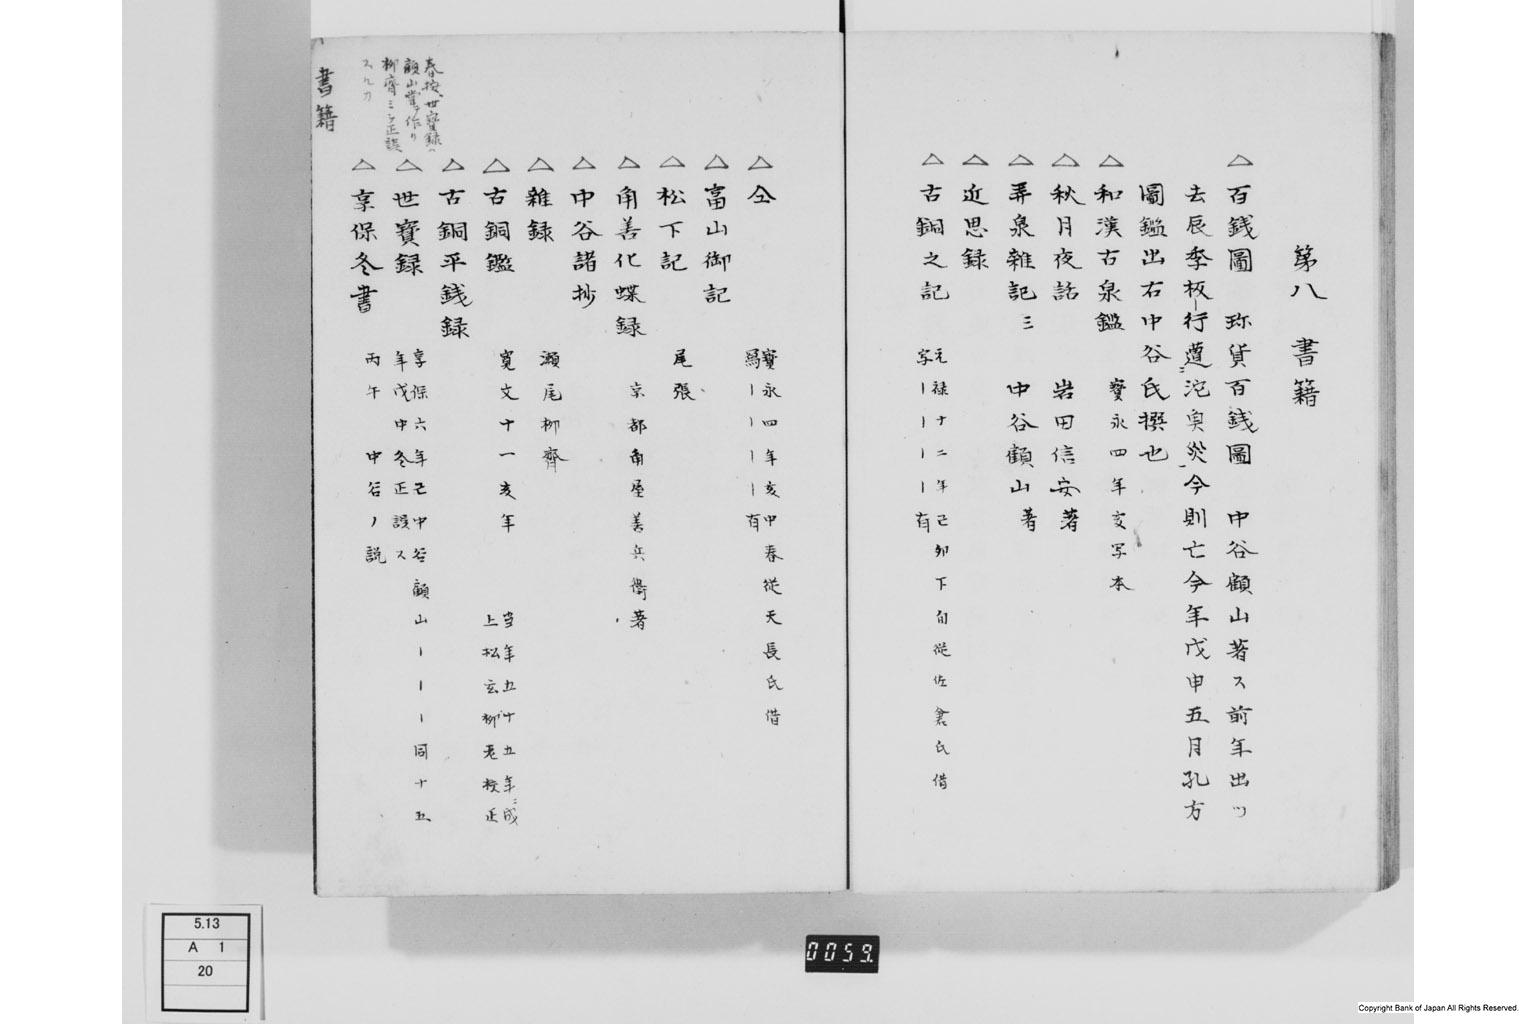 第八　書籍
△百銭圖　珎貨百銭圖　中谷顧山著ス前年出ツ
去辰季板行遭沱奥災今則亡今年戊申五月孔方
圖鑑出右中谷氏撰也
△和漢古泉鑑　寳永四年亥写本
△秋月夜話　岩田信安著
△弄泉雜記三　中谷顧山著
△近思録
△古銅之記　元禄十二年己卯下旬従佐倉氏借
写｜｜｜｜有
△仝　寳永四年亥中春従天長氏借
寫｜｜｜｜有
△富山御記
△松下記　尾張
△角善化蝶録　京都角屋善兵衛著
△中谷諸抄
△雜録　瀬尾柳齊
△古銅鑑　寛文十一亥年　当年五十五年ニ成
上松玄柳老校正
△古銅平銭録
△世寳録　享保六年己中谷顧山｜｜｜同十五
年戌中冬正誤ス
△享保冬書　丙午　中谷ノ説
春按、世寳録ハ
顧山堂ヲ作リ
柳齊ミラ正誤
スルカ
書籍
5.13
A 1
20
0059.
Copyright Bank of Japan All Rights Reserved.